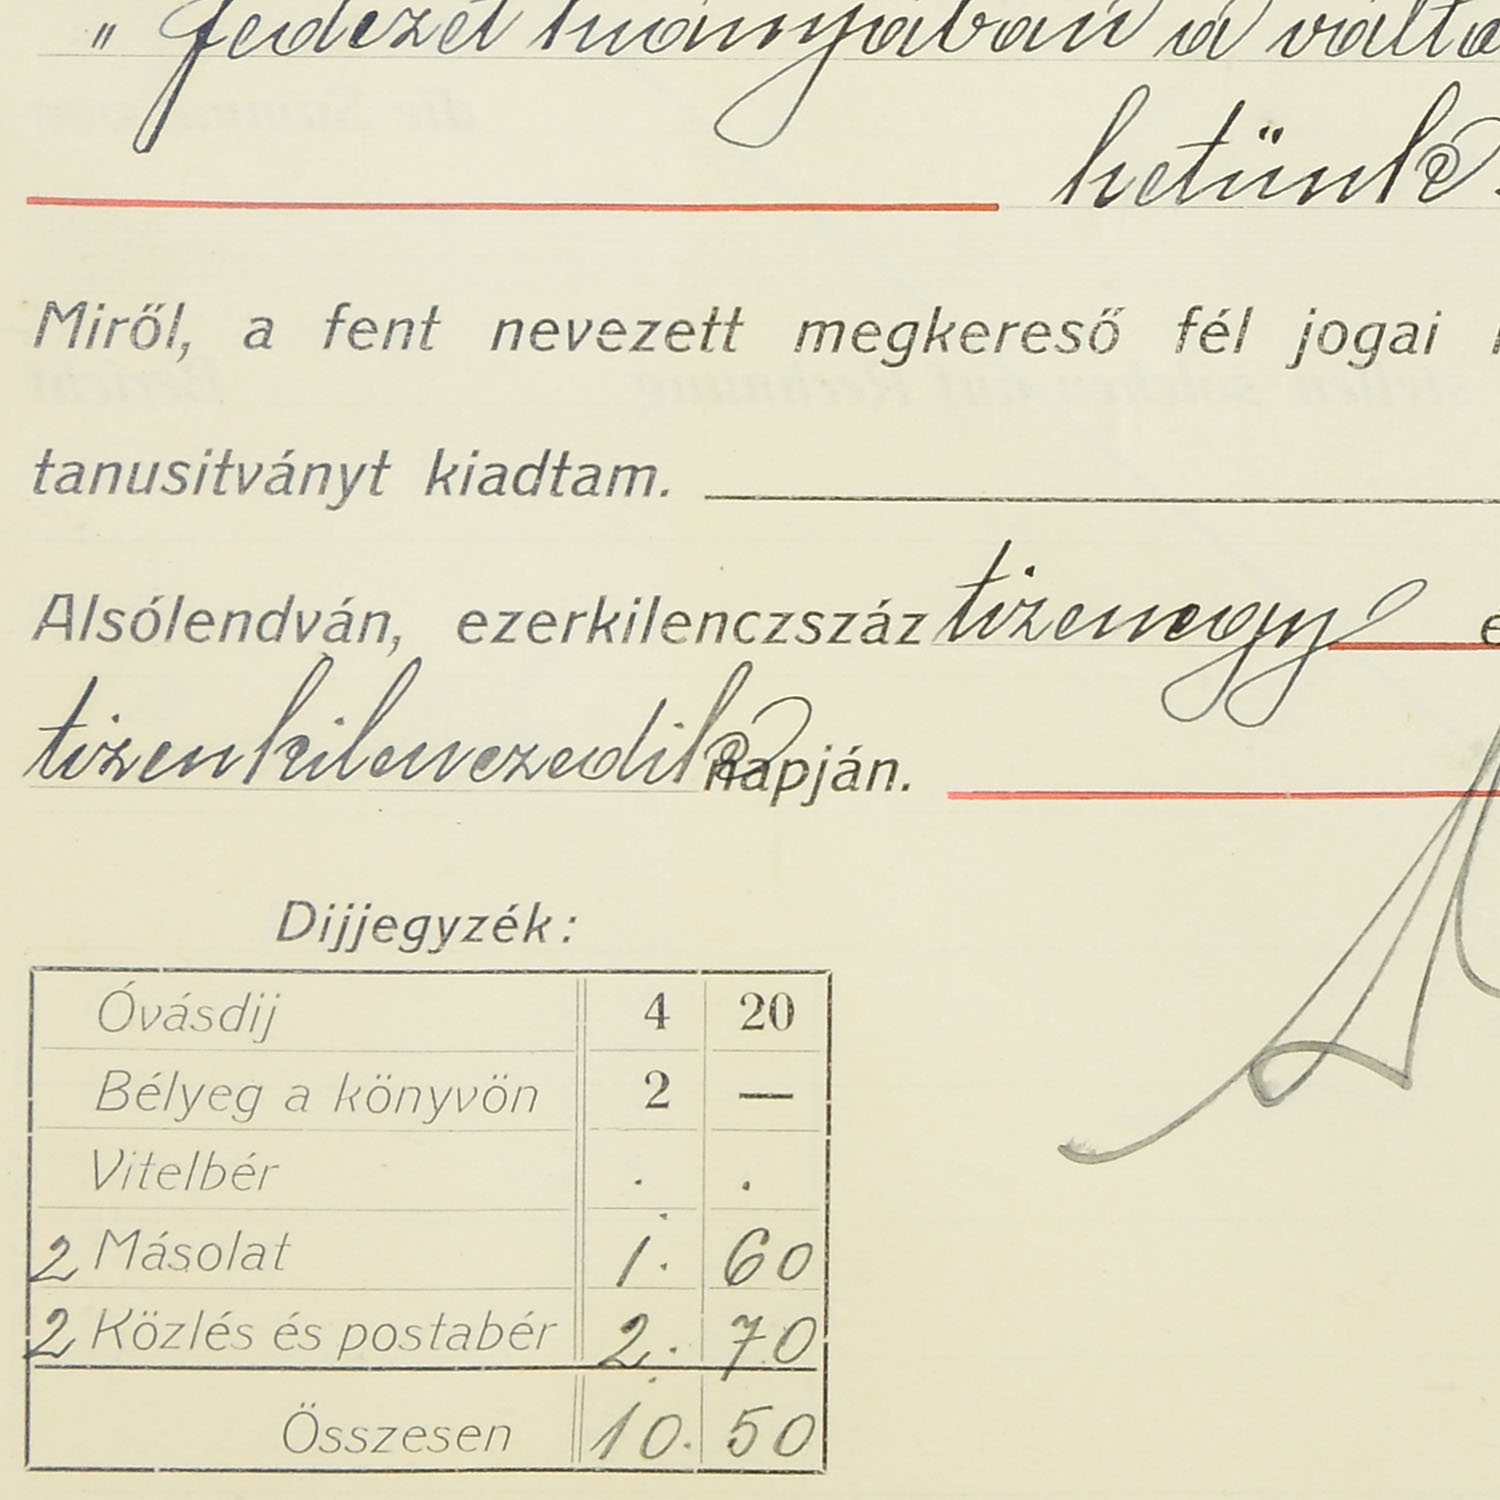 " fedezet hiányában a válto
hetünk.
Miről, a fent nevezett megkereső fél jogai
tanusitványt kiadtam.
Alsólendván, ezerkilenczszáz tizenegy e
tizenkilenczedik napján.
Dijjegyzék:
Óvásdij 4 20
Bélyeg a könyvön 2 —
Vitelbér . .
2 Másolat 1. 60
2 Közlés és postabér 2. 70
Összesen 10. 50